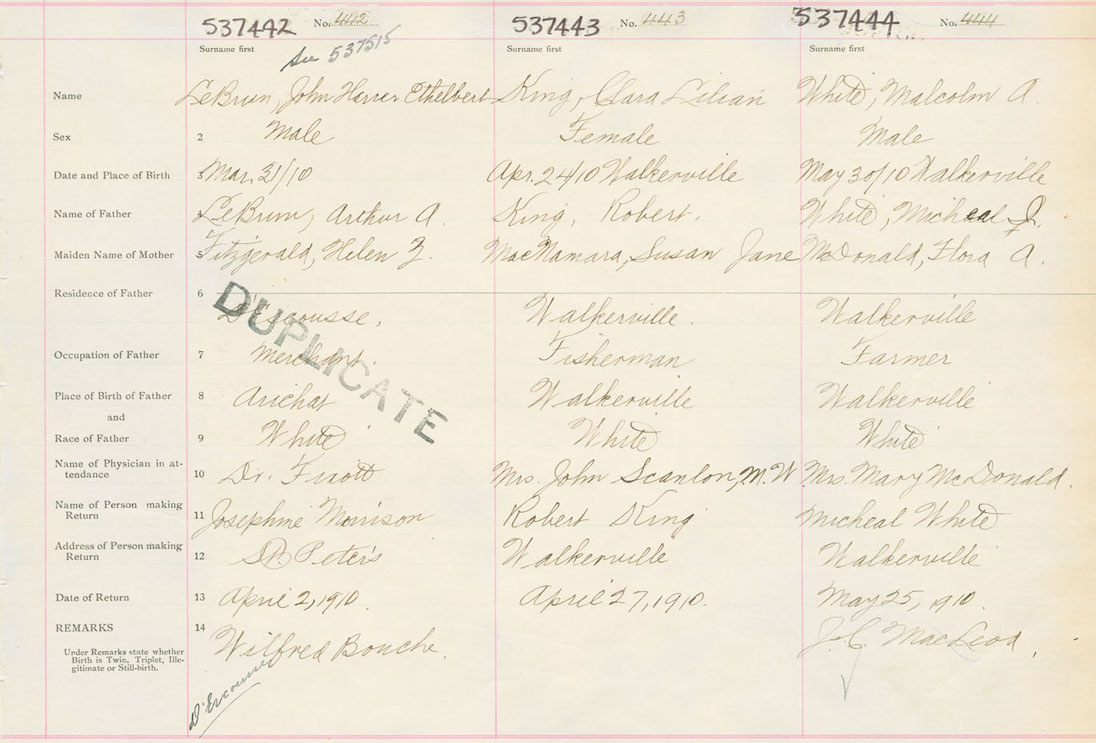 537442 No. 442 537443 No. 443 537444 No. 444
Surname first Surname first Surname first
See 537515
Name LeBrun, John Ethelbert King, Clara Lilian White, Malcolm A.
Sex 2 Male Female Male
Date and Place of Birth 3 Mar. 31/10 Apr. 24/10 Walkerville May 30/10 Walkerville
Name of Father 4 LeBrun, Arthur A. King, Robert. White, Micheal J.
Maiden Name of Mother 5 Fitzgerald, Helen Z. MacNamara, Susan Jane McDonald, Flora A.
Residence of Father 6 D'Escousse, Walkerville. Walkerville
DUPLICATE
Occupation of Father 7 Merchant. Fisherman Farmer
Place of Birth of Father 8 Arichat Walkerville Walkerville
and
Race of Father 9 White White White
Name of Physician in at-
tendance 10 Dr. Mrs. John Scanlon, M.W Mrs. Mary McDonald.
Name of Person making
Return 11 Josephine Morrison Robert King Micheal White
Address of Person making
Return 12 St. Peter's Walkerville Walkerville
Date of Return 13 April 2, 1910. April 27, 1910. May 25, 1910.
REMARKS 14 Wilfred Bouche. J. C. MacLeod.
Under Remarks state whether
Birth is Twin, Triplet, Ille-
gitimate or Still-birth.